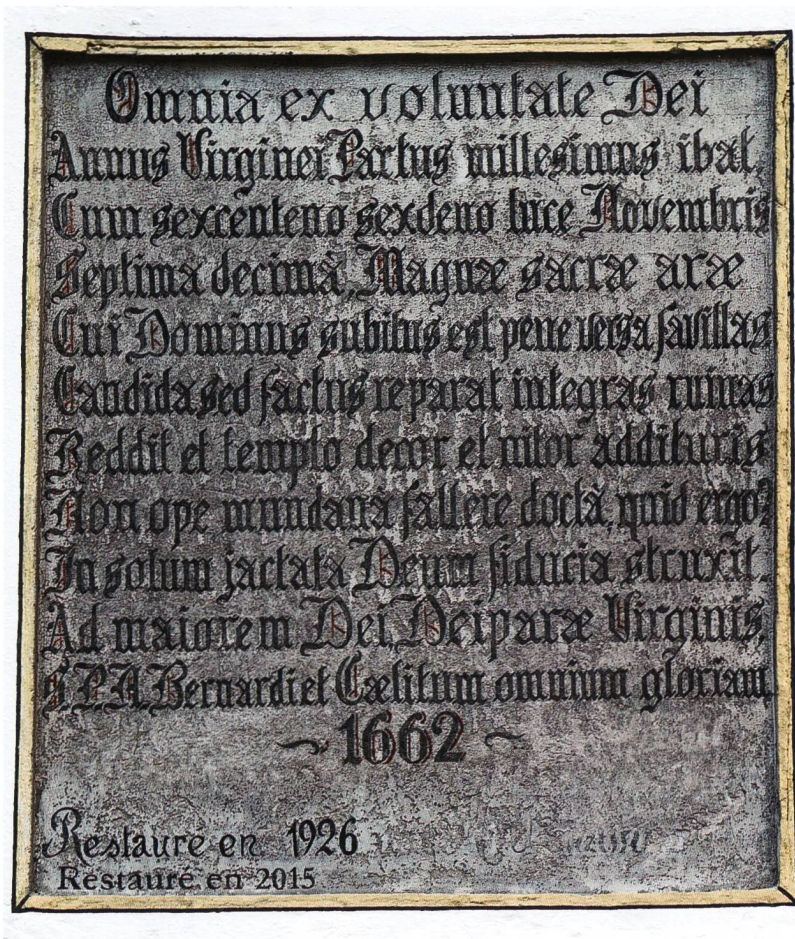 Omnia ex voluntate Dei
Annus Virginei Partus millesimus ibat
Cum sexcenteno sexdeno luce Novembris
Septima decimâ, Magnæ sacræ aræ
Cui Dominus subitus est pene versa favillas
Candida sed factus reparat integras ruinas
Reddit et templo decor et nitor additur is
Non ope mundanâ fallere doctâ, quid ergo?
In solum jactata Deum fiducia struxit.
Ad maiorem Dei, Deiparæ Virginis,
S.P.N. Bernardi et Cælitum omnium gloriam
~ 1662 ~
Restauré en 1926
Restauré en 2015